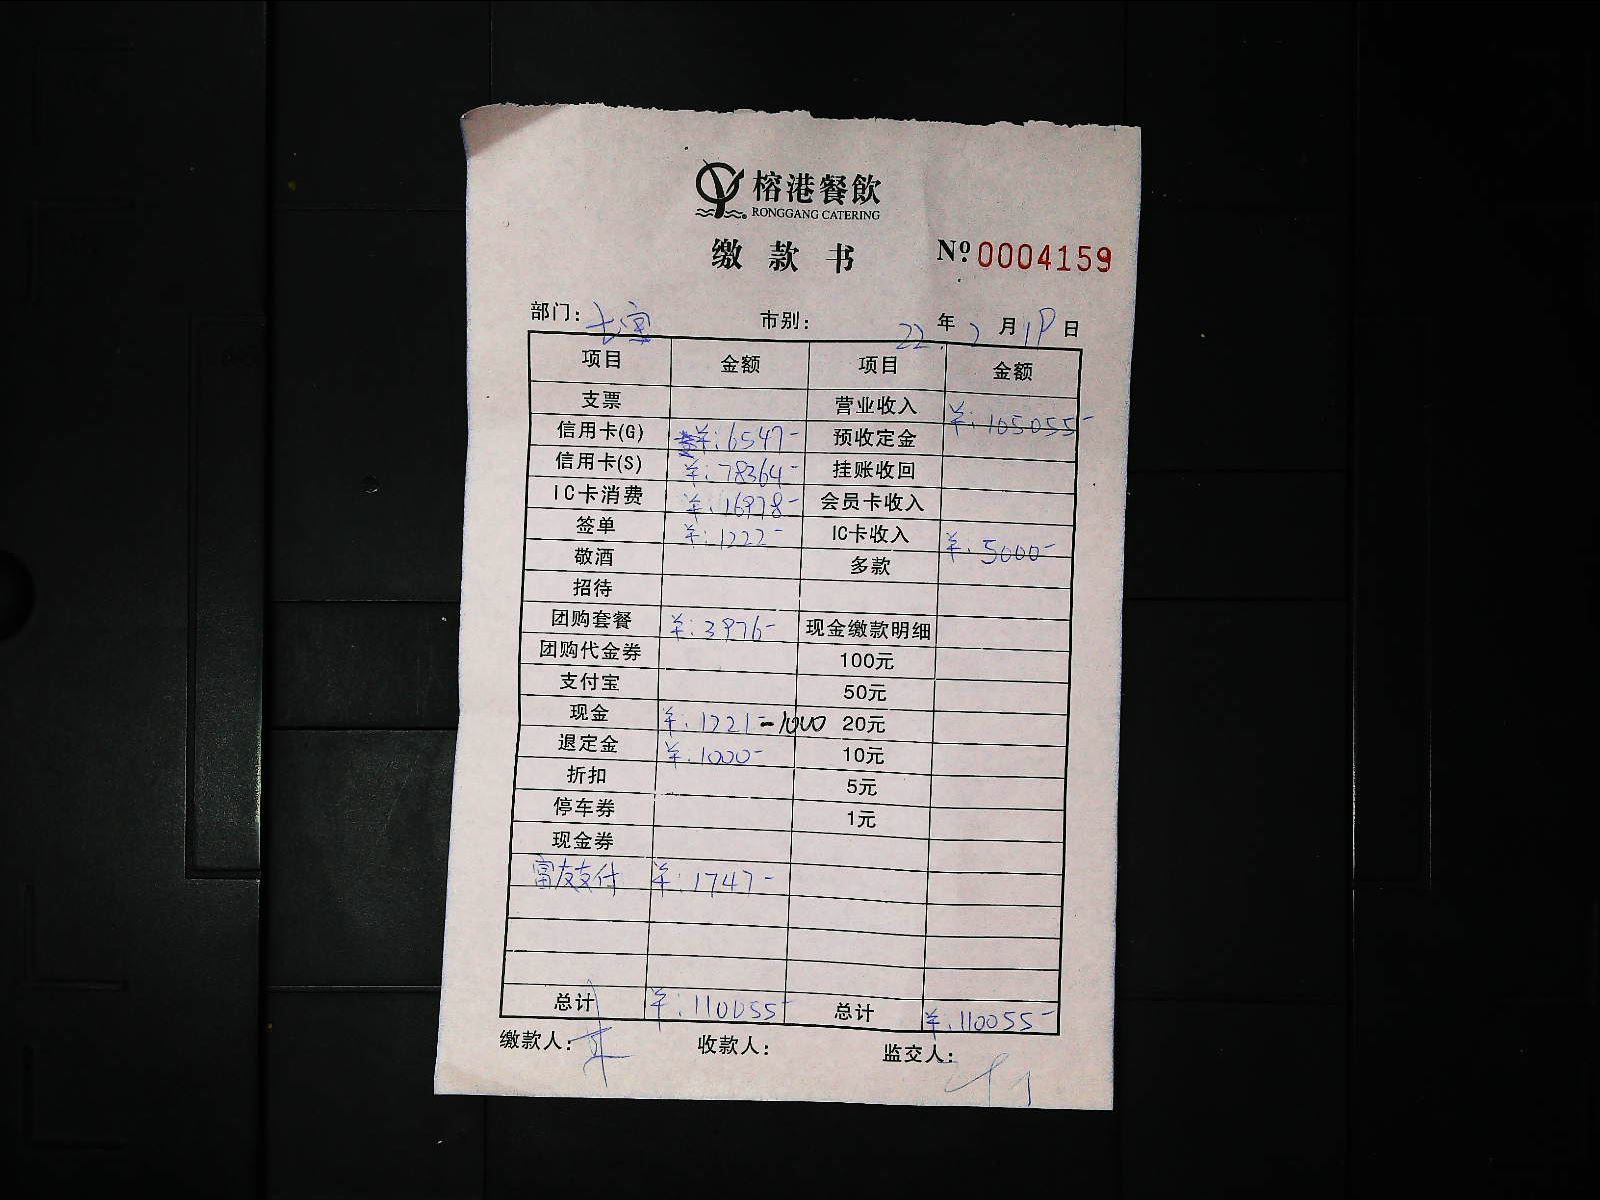 榕港餐飲
RONGGANG CATERING
缴款书 Nº 0004159
部门: 市别: 22年2月19日
项目 金额 项目 金额
支票 营业收入 ¥:105055-
信用卡(G) ¥:6547- 预收定金
信用卡(S) ¥:78364- 挂账收回
IC卡消费 ¥:16978- 会员卡收入
签单 ¥:1222- IC卡收入 ¥:5000-
敬酒 多款
招待
团购套餐 ¥:3976- 现金缴款明细
团购代金券 100元
支付宝 50元
现金 ¥:1221-1000 20元
退定金 ¥:1000- 10元
折扣 5元
停车券 1元
现金券
富友支付 ¥:1747-
总计 ¥:110055- 总计 ¥:110055-
缴款人: 收款人: 监交人: